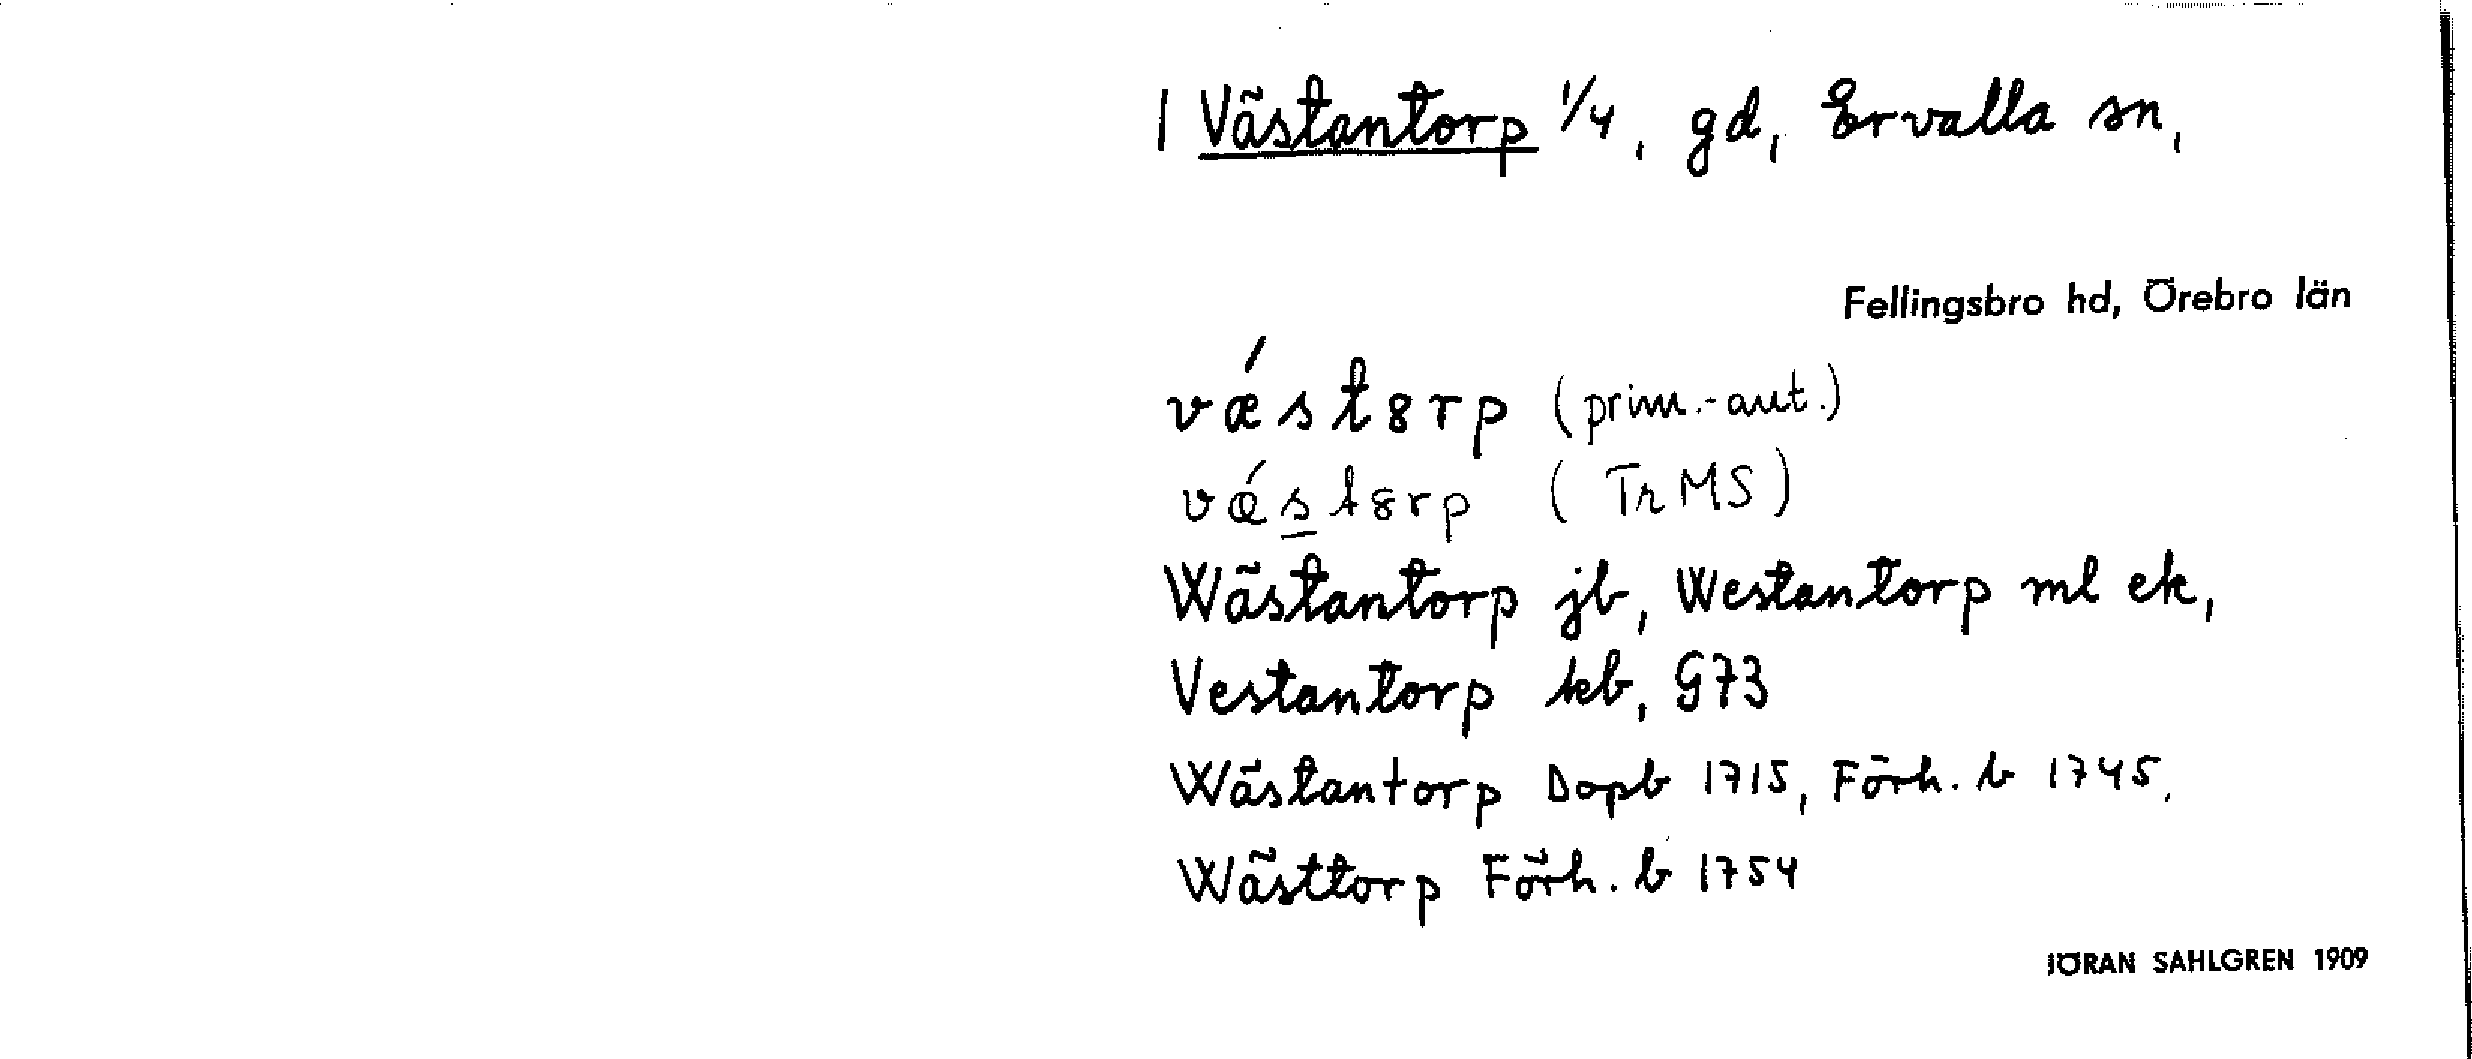 1 Västantorp 1/4, gd, Ervalla sn,
Fellingsbro hd, Örebro län
vǽst8rp (prim.-aut.)
vǽst8rp (TrMS)
Wästantorp jb, Westantorp ml ek,
Vestantorp kb, G73
Wästantorp Dopb 1715, Förh. b 1745,
Wästtorp Förh. b 1754
JÖRAN SAHLGREN 1909